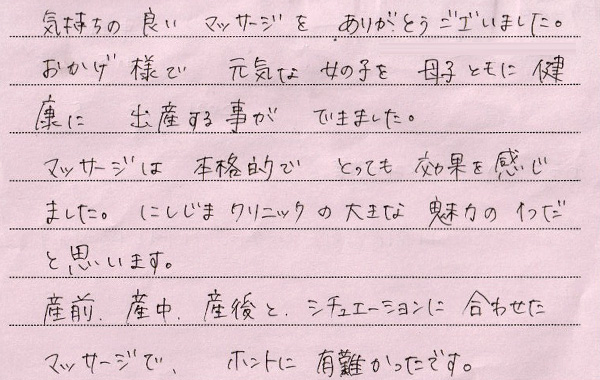 気持ちの良い マッサージを ありがとうございました。
おかげ様で 元気な女の子を 母子ともに健
康に 出産する事が できました。
マッサージは 本格的で とっても 効果を感じ
ました。にしじまクリニックの大きな魅力の1つだ
と思います。
産前、産中、産後と、シチュエーションに合わせた
マッサージで、 ホントに 有難かったです。